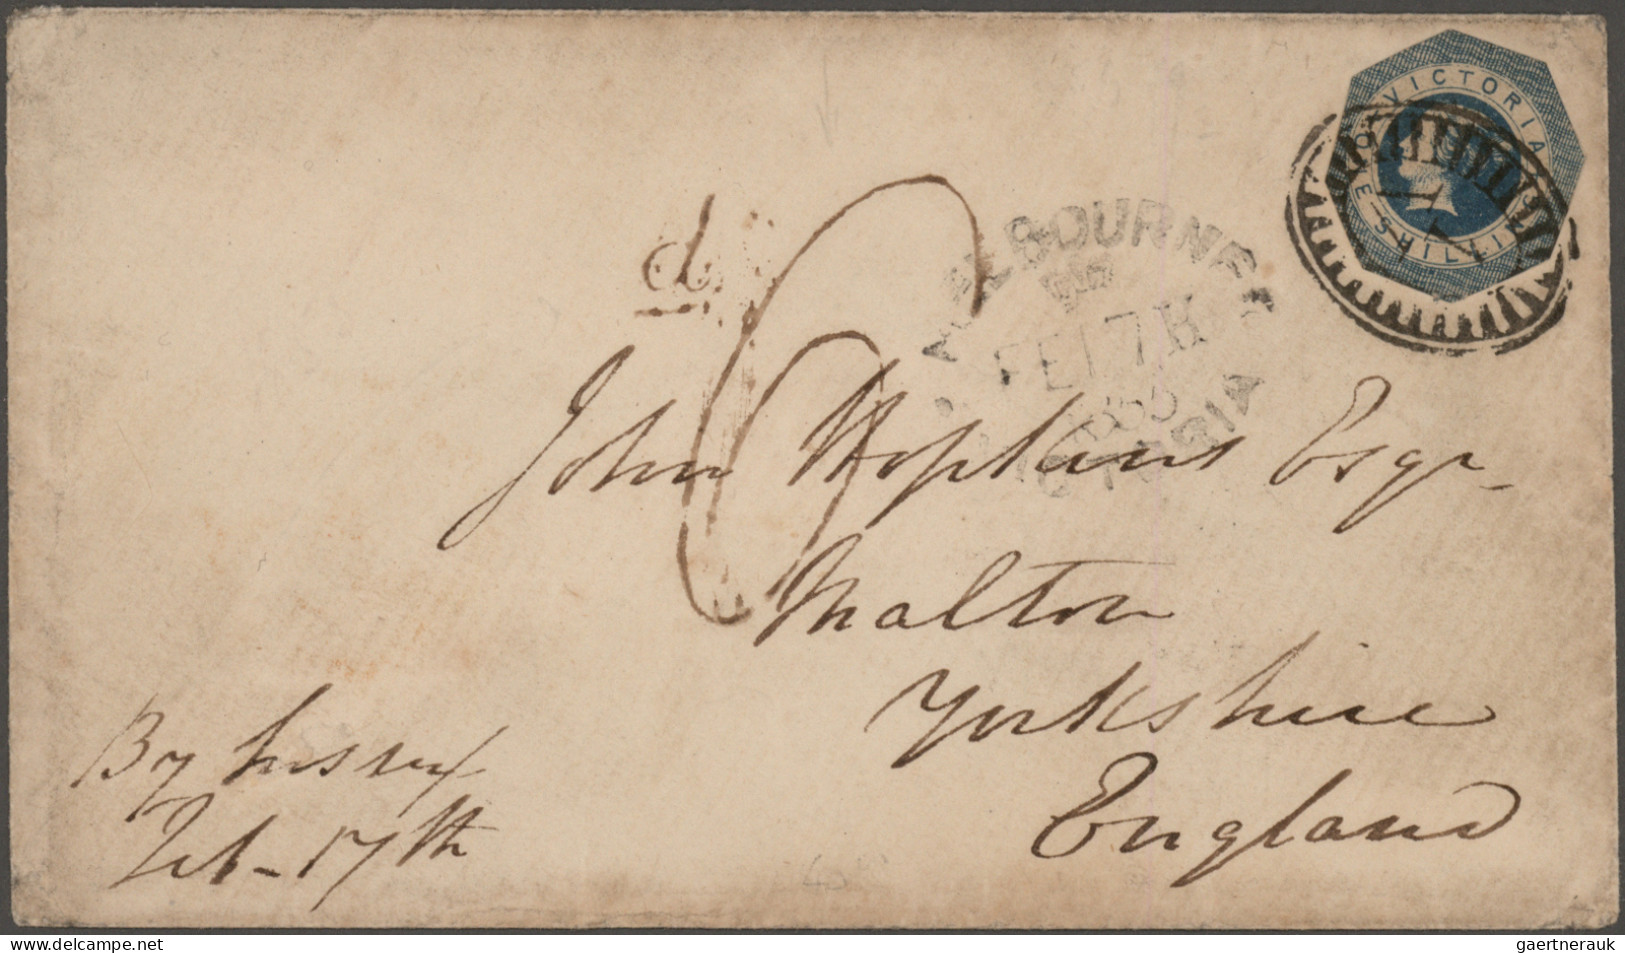 VICTORIA
ONE SHILLING
MELBOURNE
FE 17 H
1855
VICTORIA
d.
6
John Hopkins Esqr.
Malton
Yorkshire
England
By
Feb - 17th
delcampe.net
gaertnerauk